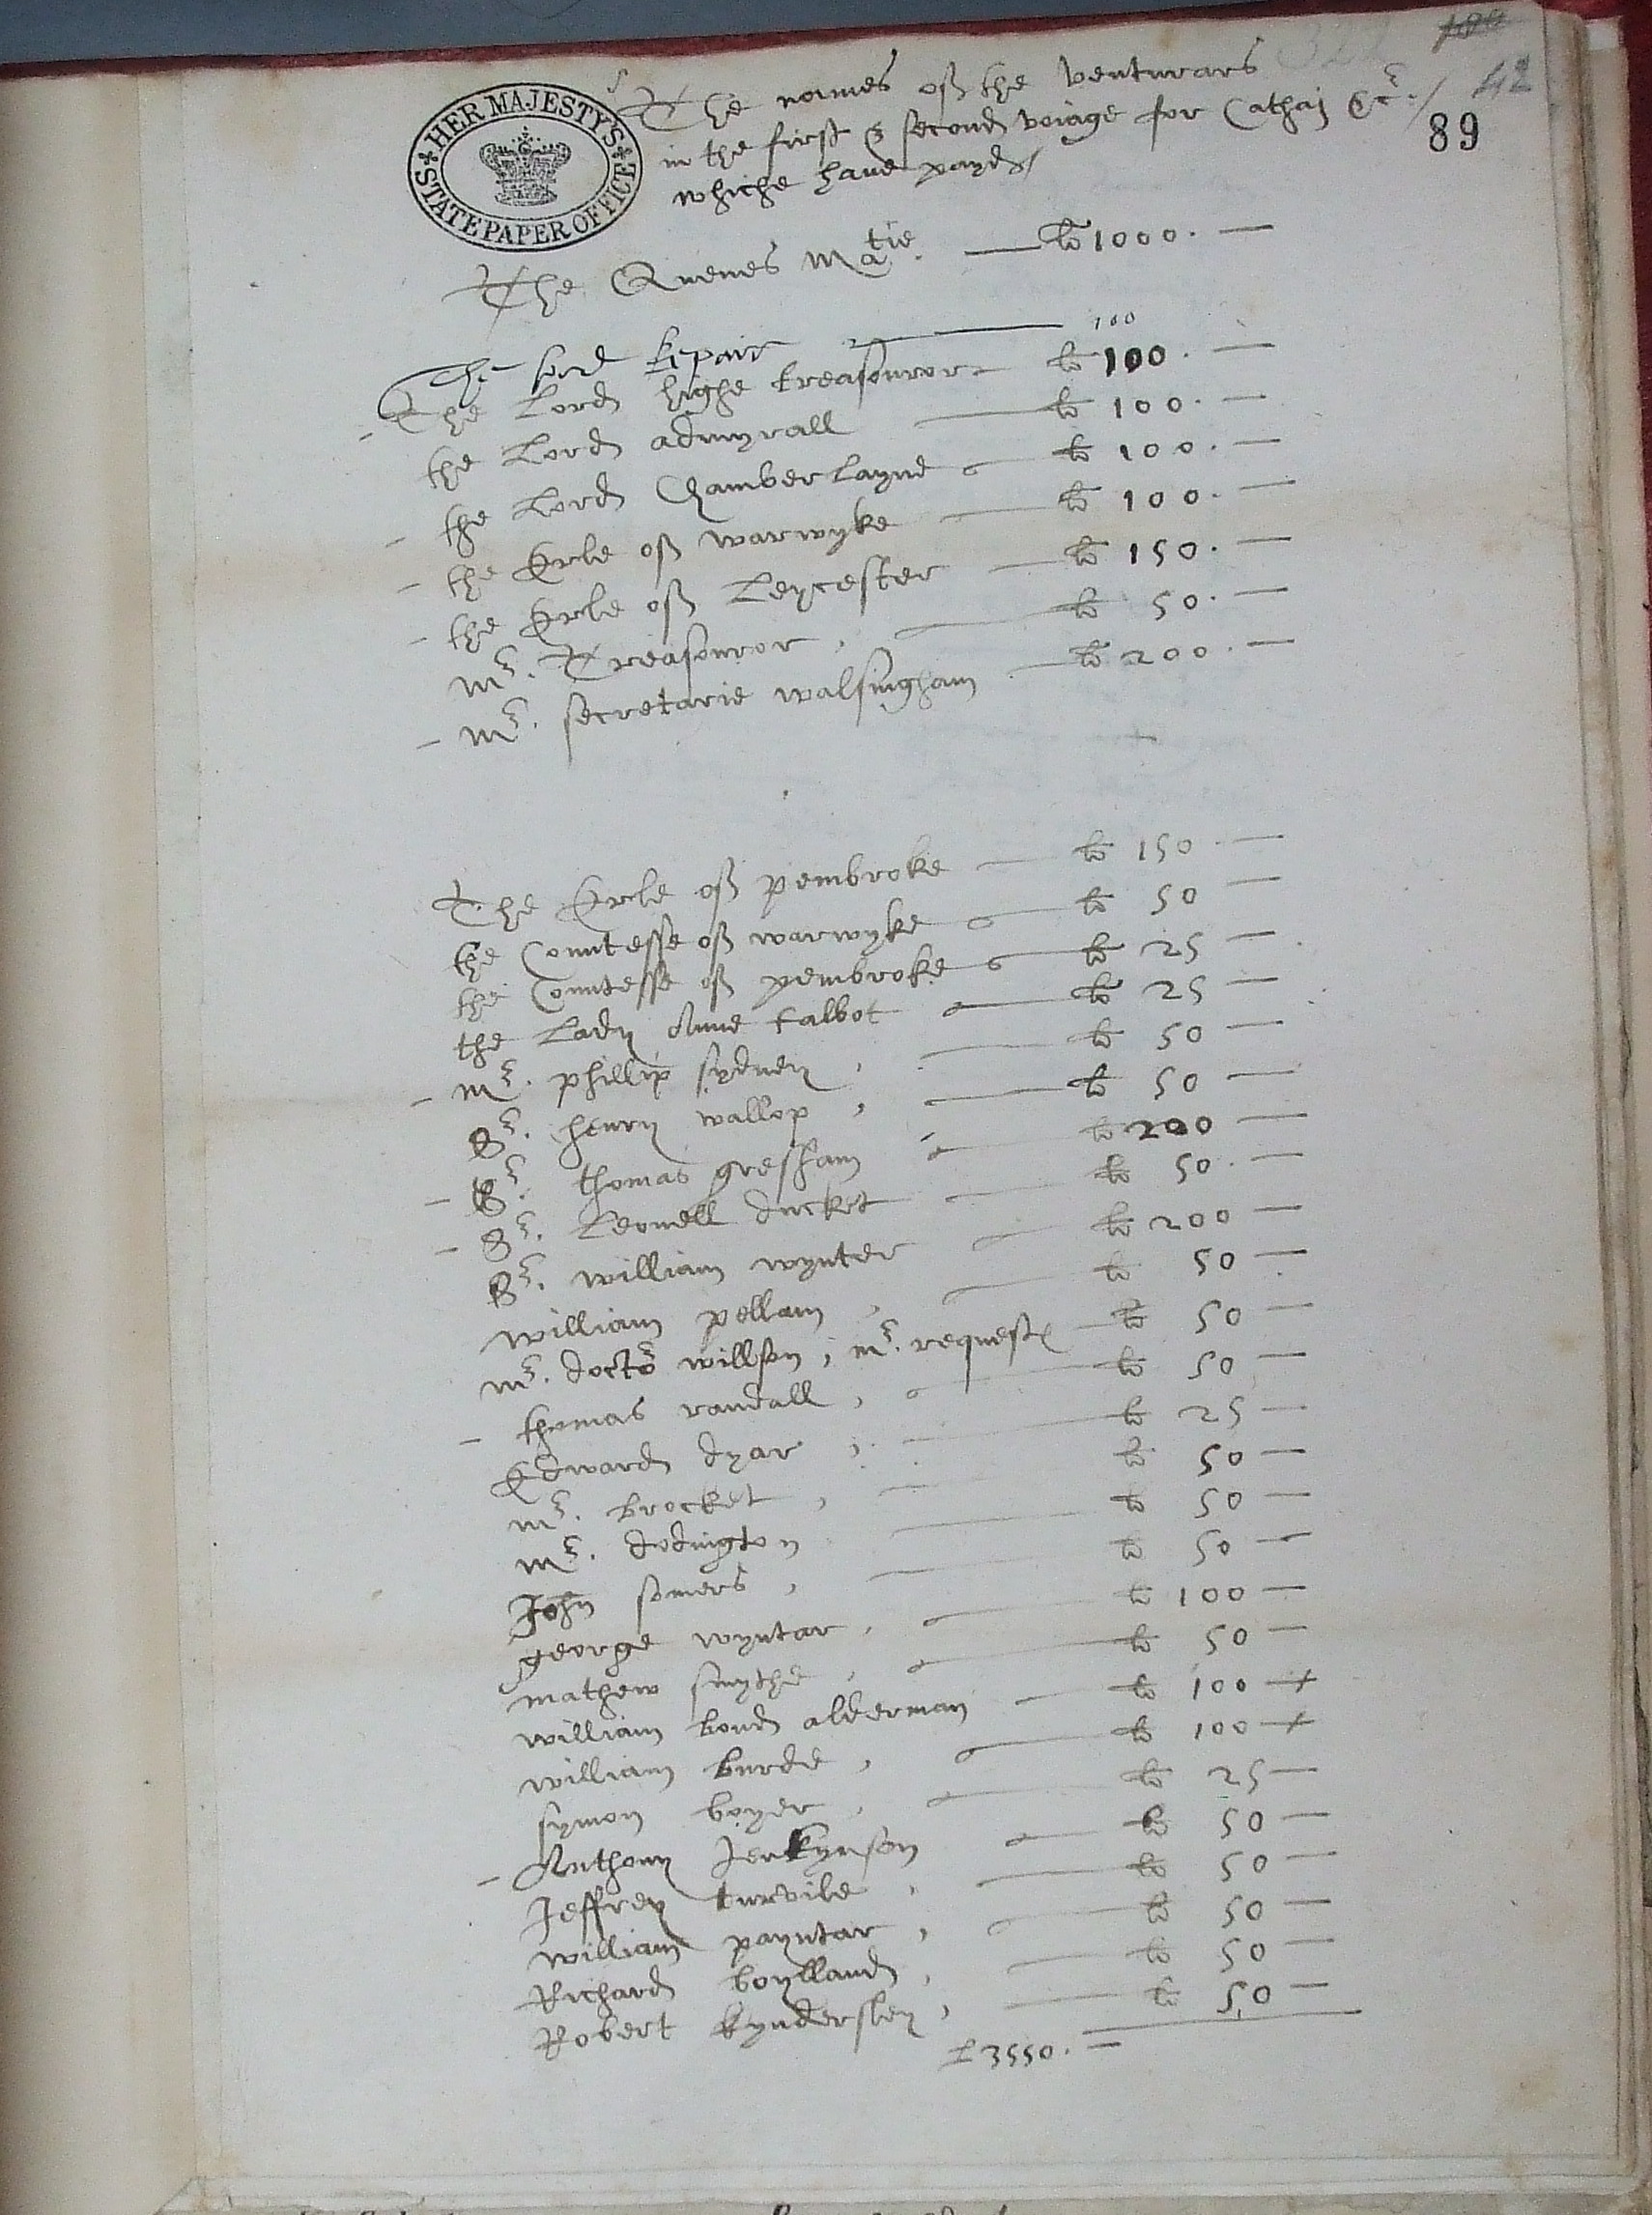 HER MAJESTY'S STATE PAPER OFFICE
42
89
The names off the venturars
in the first & second voiage for Cathaj &c̃./
whiche have payd./
The Quenes Matie. — li 1000. —
The Lord — 100
The Lord highe treasouror — li 100. —
the Lord admyrall — li 100. —
the Lord Chamberlayne — li 100. —
the Erle off warwyke — li 100. —
the Erle off Leycester — li 150. —
Mr. Treasouror, — li 50. —
Mr. secretarie walsingham — li 200. —
The Erle off pembroke — li 150. —
the Countesse off warwyke — li 50 —
the Countesse off pembroke — li 25 —
the Lady Anne talbot — li 25 —
Mr. phillip sydney, — li 50 —
Sr. henry wallop, — li 50 —
Sr. thomas gresham — li 200 —
Sr. Leonell ducket — li 50. —
Sr. william wynter — li 200 —
william pellam, — li 50 —
Mr. doctor willson, mr. requests — li 50 —
thomas randall, — li 50 —
Edward dyar, — li 25 —
Mr. brocket, — li 50 —
Mr. dodington — li 50 —
John somers, — li 50 —
george wyntar, — li 100 —
mathew smythe, — li 50 —
william bond alderman — li 100 —
william burde, — li 100 —
symon boyer, — li 25 —
Anthony Jenkynson — li 50 —
Jeffrey turvile, — li 50 —
william payntar, — li 50 —
Richard boylland, — li 50 —
Robert kyndersley, — li 50 —
£ 3550. —